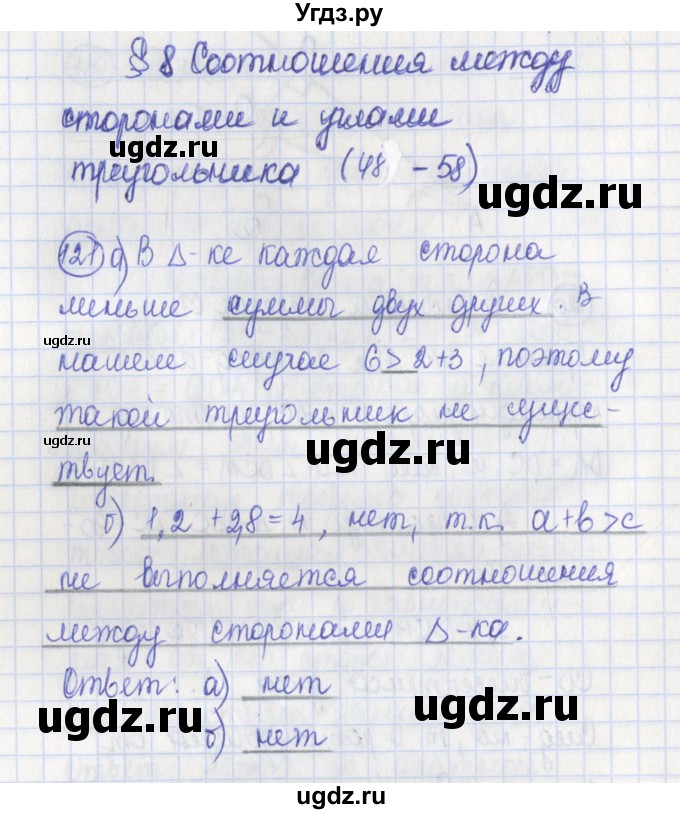 Угдз.ру
§ 8 Соотношения между
сторонами и углами
ugdz.ru
треугольника (48 - 58)
ugdz.ru
121 а) В Δ-ке каждая сторона
меньше суммы двух других. В
ugdz.ru
ugdz.ru
нашем случае 6 > 2+3, поэтому
такой треугольник не сущес-
ugdz.ru
ugdz.ru
твует.
б) 1,2 + 2,8 = 4, нет, т.к. a+b>c
не выполняется соотношения
между сторонами Δ-ка.
Ответ: а) нет
ugdz.ru
ugdz.ru
б) нет
ugdz.ru